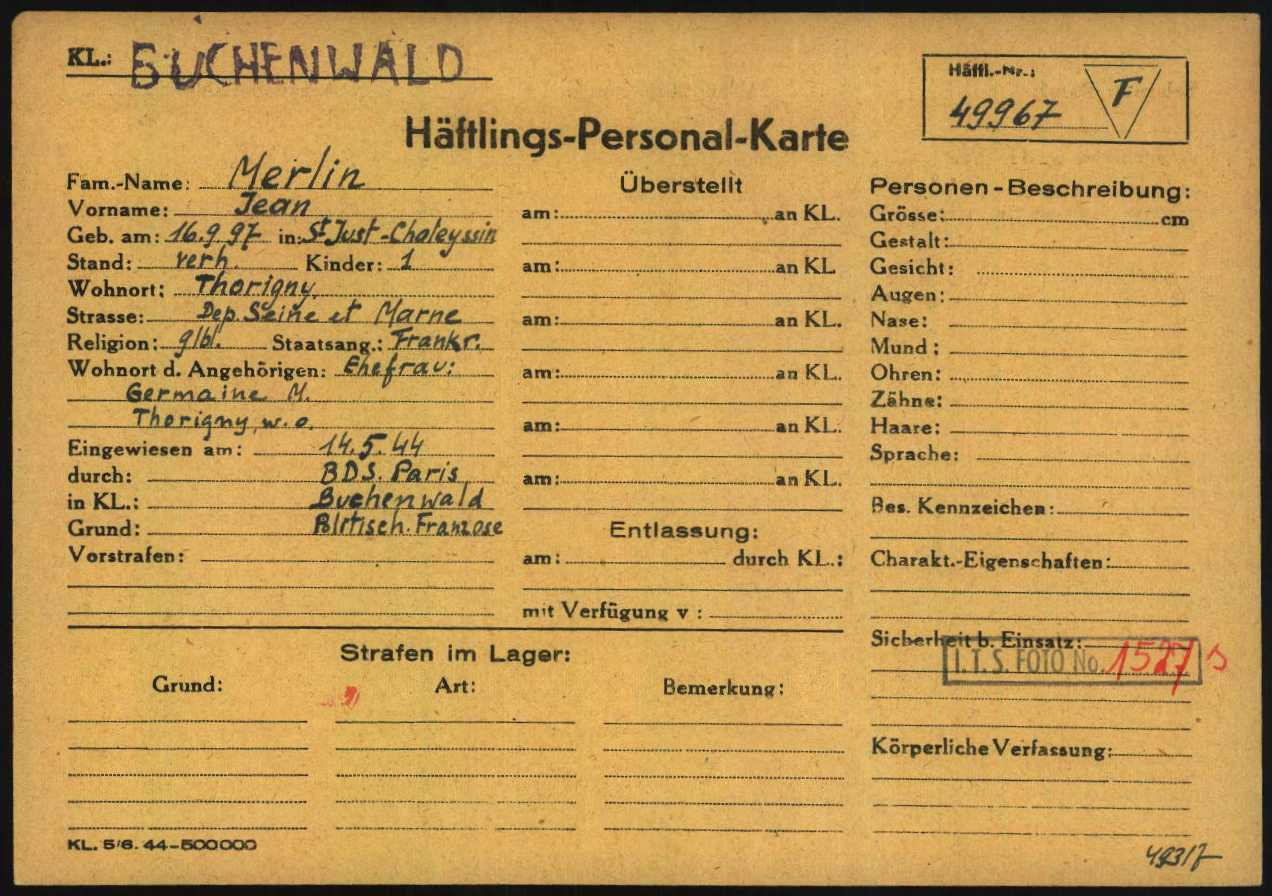 KL.: BUCHENWALD
Häftl.-Nr.:
49967
F
Häftlings-Personal-Karte
Fam.-Name: Merlin
Vorname: Jean
Geb. am: 16.9.97 in: St Just-Chaleyssin
Stand: verh. Kinder: 1
Wohnort: Thorigny
Strasse: Dep. Seine et Marne
Religion: glbl. Staatsang.: Frankr.
Wohnort d. Angehörigen: Ehefrau:
Germaine M.
Thorigny, w.o.
Eingewiesen am: 14.5.44
durch: BDS. Paris
in KL.: Buchenwald
Grund: Politisch. Franzose
Vorstrafen:
Überstellt
am: an KL.
am: an KL
am: an KL.
am: an KL.
am: an KL.
am: an KL.
Entlassung:
am: durch KL.:
mit Verfügung v :
Personen-Beschreibung:
Grösse: cm
Gestalt:
Gesicht:
Augen:
Nase:
Mund :
Ohren:
Zähne:
Haare:
Sprache:
Bes. Kennzeichen:
Charakt.-Eigenschaften:
Sicherheit b. Einsatz:
I.T.S. FOTO No. 1527
Körperliche Verfassung:
Strafen im Lager:
Grund: Art: Bemerkung:
KL. 5/6. 44-500000